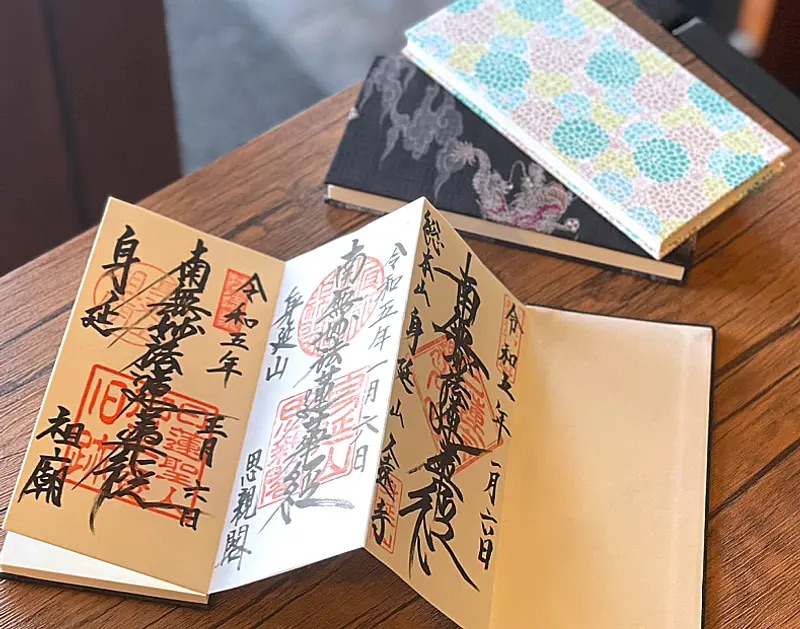 令和五年 正月六日
南無妙法蓮華経
身延 祖廟
日蓮聖人
旧跡
令和五年 一月六日
南無妙法蓮華経
身延山 思親閣
身延山
思親閣
令和五年 一月六日
南無妙法蓮華経
総本山 身延山 久遠寺